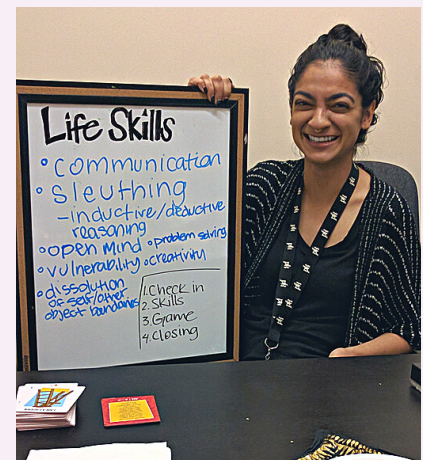 Life Skills
• communication
• sleuthing
- inductive/deductive
reasoning
• open mind • problem solving
• vulnerability • creativity
• dissolution
of self/other
object boundaries
1. Check in
2. Skills
3. Game
4. Closing